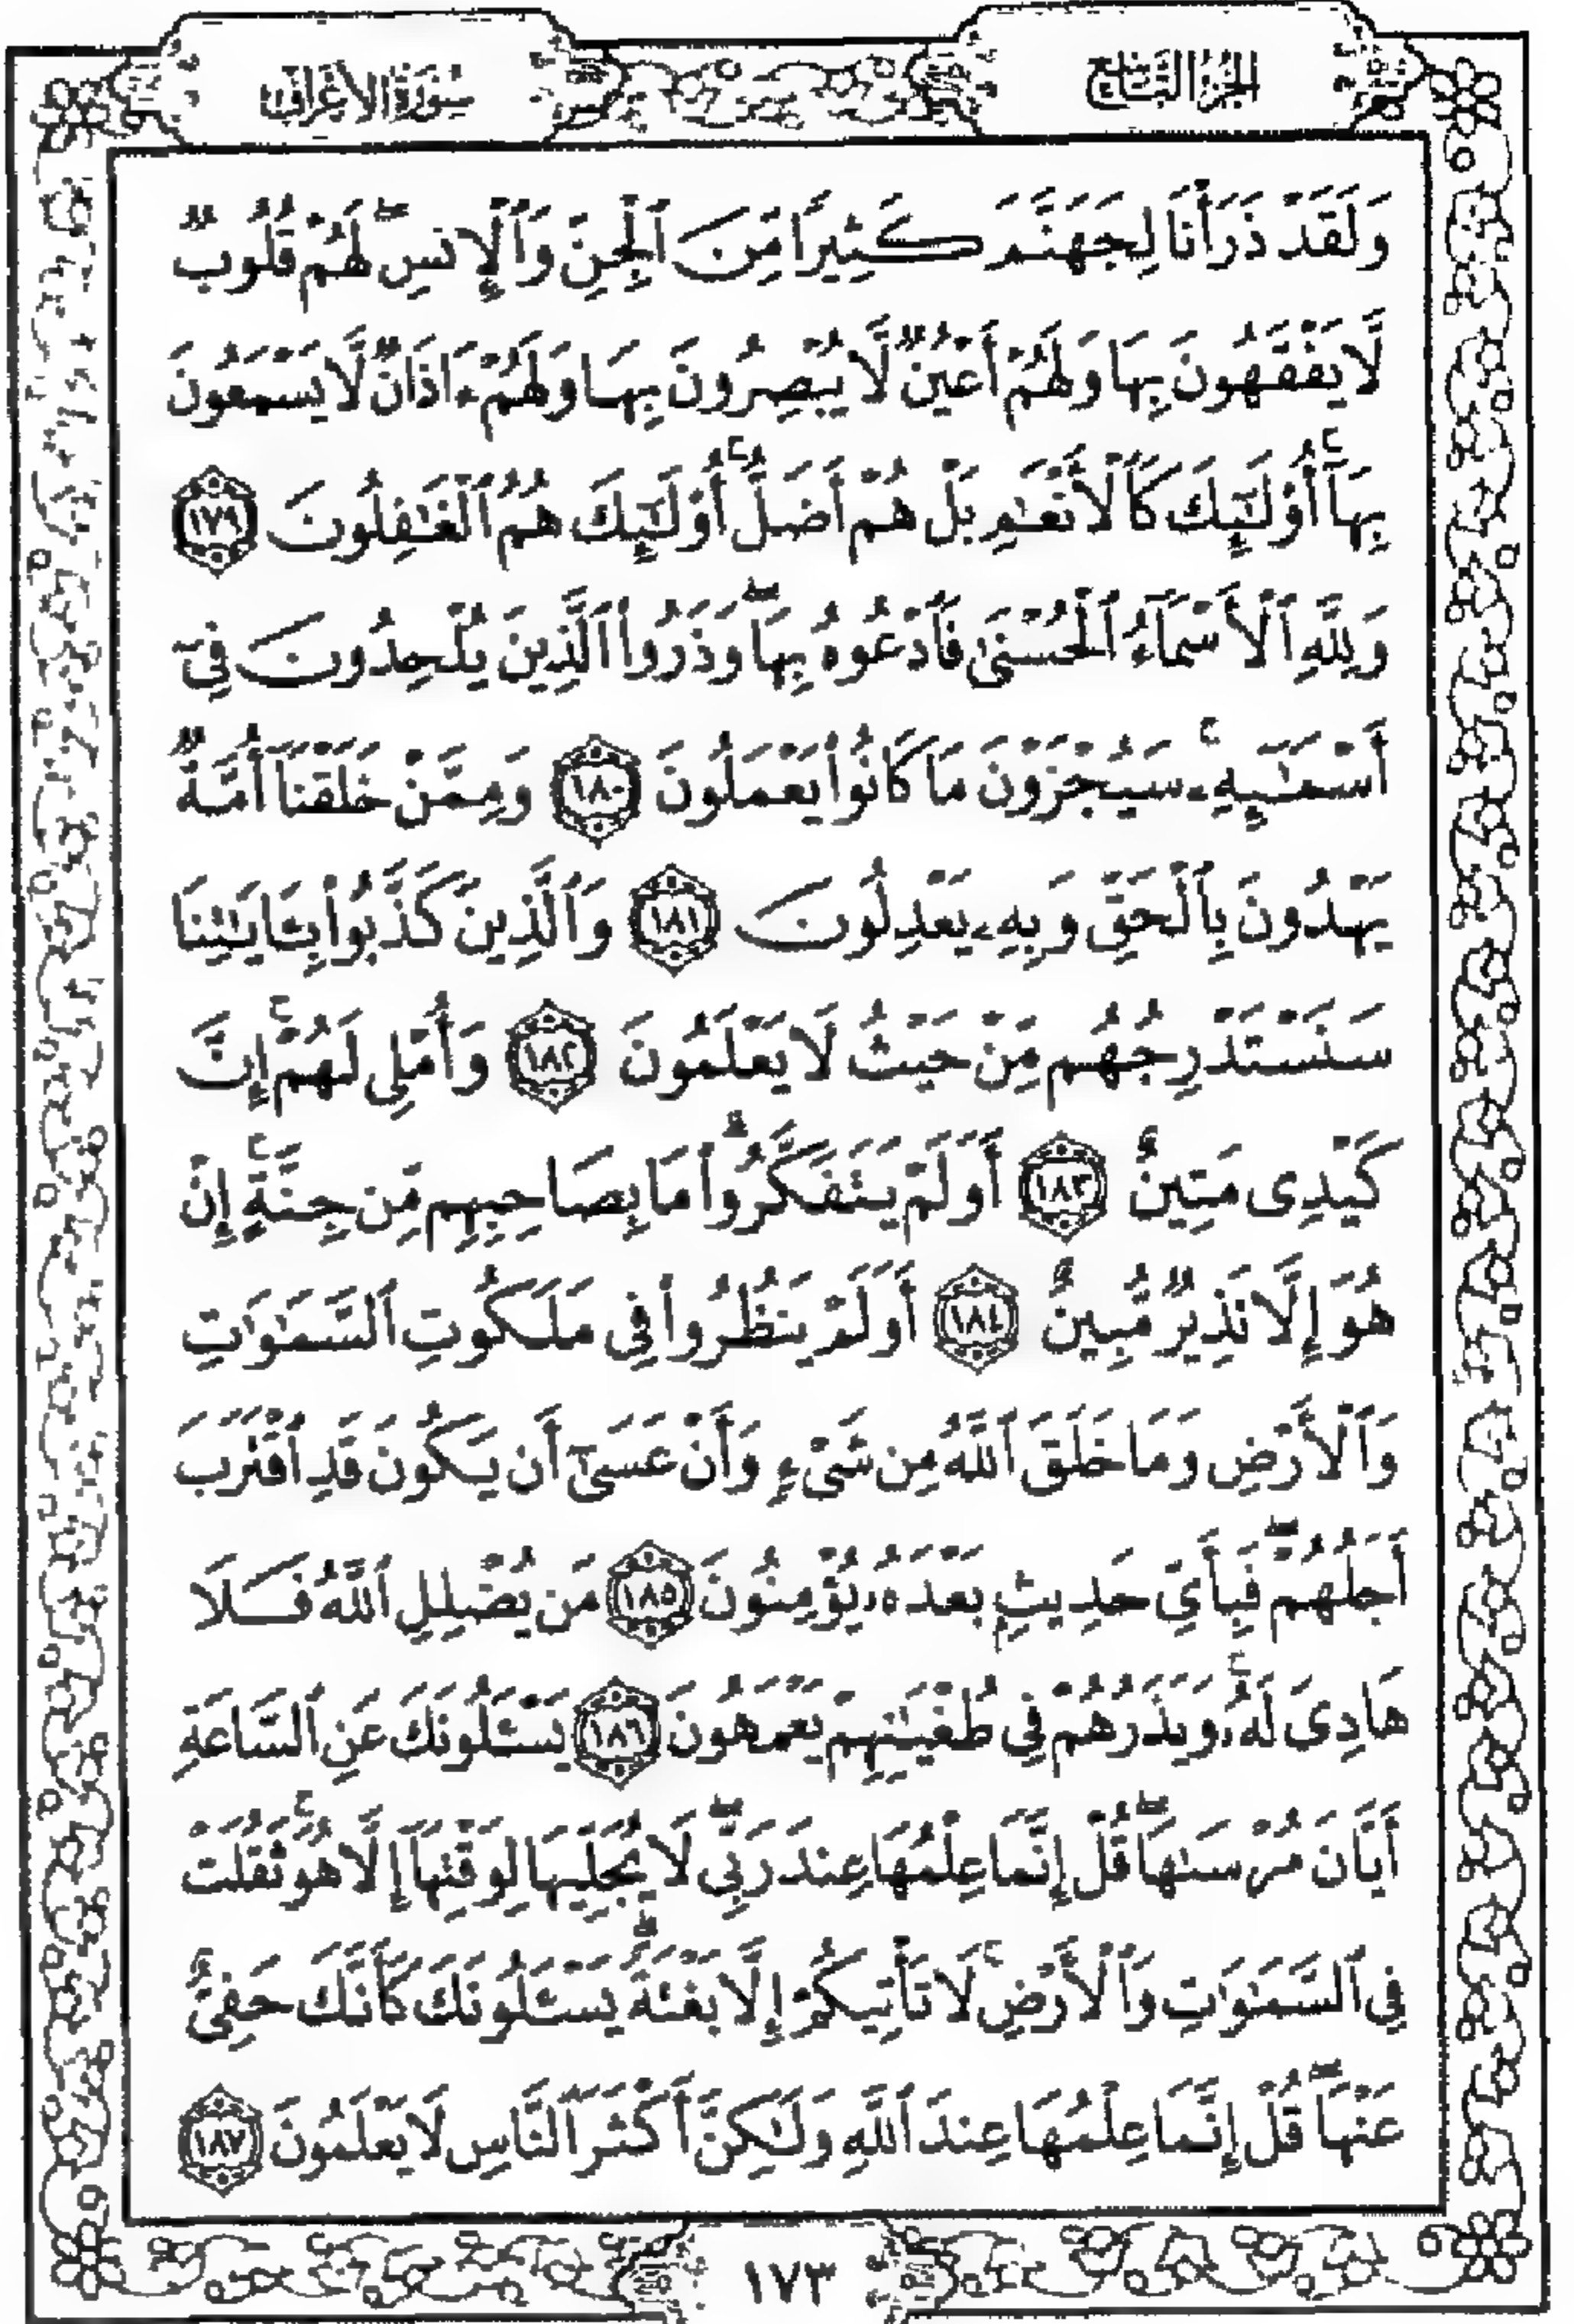 الجزء التاسع
سورة الأعراف
وَلَقَدْ ذَرَأْنَا لِجَهَنَّمَ كَثِيرًا مِّنَ ٱلْجِنِّ وَٱلْإِنسِ ۖ لَهُمْ قُلُوبٌ
لَّا يَفْقَهُونَ بِهَا وَلَهُمْ أَعْيُنٌ لَّا يُبْصِرُونَ بِهَا وَلَهُمْ ءَاذَانٌ لَّا يَسْمَعُونَ
بِهَآ ۚ أُو۟لَـٰٓئِكَ كَٱلْأَنْعَـٰمِ بَلْ هُمْ أَضَلُّ ۚ أُو۟لَـٰٓئِكَ هُمُ ٱلْغَـٰفِلُونَ ١٧٩
وَلِلَّهِ ٱلْأَسْمَآءُ ٱلْحُسْنَىٰ فَٱدْعُوهُ بِهَا ۖ وَذَرُوا۟ ٱلَّذِينَ يُلْحِدُونَ فِىٓ
أَسْمَـٰٓئِهِۦ ۚ سَيُجْزَوْنَ مَا كَانُوا۟ يَعْمَلُونَ ١٨٠ وَمِمَّنْ خَلَقْنَآ أُمَّةٌ
يَهْدُونَ بِٱلْحَقِّ وَبِهِۦ يَعْدِلُونَ ١٨١ وَٱلَّذِينَ كَذَّبُوا۟ بِـَٔايَـٰتِنَا
سَنَسْتَدْرِجُهُم مِّنْ حَيْثُ لَا يَعْلَمُونَ ١٨٢ وَأُمْلِى لَهُمْ ۚ إِنَّ
كَيْدِى مَتِينٌ ١٨٣ أَوَلَمْ يَتَفَكَّرُوا۟ ۗ مَا بِصَاحِبِهِم مِّن جِنَّةٍ ۚ إِنْ
هُوَ إِلَّا نَذِيرٌ مُّبِينٌ ١٨٤ أَوَلَمْ يَنظُرُوا۟ فِى مَلَكُوتِ ٱلسَّمَـٰوَٰتِ
وَٱلْأَرْضِ وَمَا خَلَقَ ٱللَّهُ مِن شَىْءٍ وَأَنْ عَسَىٰٓ أَن يَكُونَ قَدِ ٱقْتَرَبَ
أَجَلُهُمْ ۖ فَبِأَىِّ حَدِيثٍۭ بَعْدَهُۥ يُؤْمِنُونَ ١٨٥ مَن يُضْلِلِ ٱللَّهُ فَلَا
هَادِىَ لَهُۥ ۚ وَيَذَرُهُمْ فِى طُغْيَـٰنِهِمْ يَعْمَهُونَ ١٨٦ يَسْـَٔلُونَكَ عَنِ ٱلسَّاعَةِ
أَيَّانَ مُرْسَىٰهَا ۖ قُلْ إِنَّمَا عِلْمُهَا عِندَ رَبِّى ۖ لَا يُجَلِّيهَا لِوَقْتِهَآ إِلَّا هُوَ ۚ ثَقُلَتْ
فِى ٱلسَّمَـٰوَٰتِ وَٱلْأَرْضِ ۚ لَا تَأْتِيكُمْ إِلَّا بَغْتَةً ۗ يَسْـَٔلُونَكَ كَأَنَّكَ حَفِىٌّ
عَنْهَا ۖ قُلْ إِنَّمَا عِلْمُهَا عِندَ ٱللَّهِ وَلَـٰكِنَّ أَكْثَرَ ٱلنَّاسِ لَا يَعْلَمُونَ ١٨٧
١٧٣